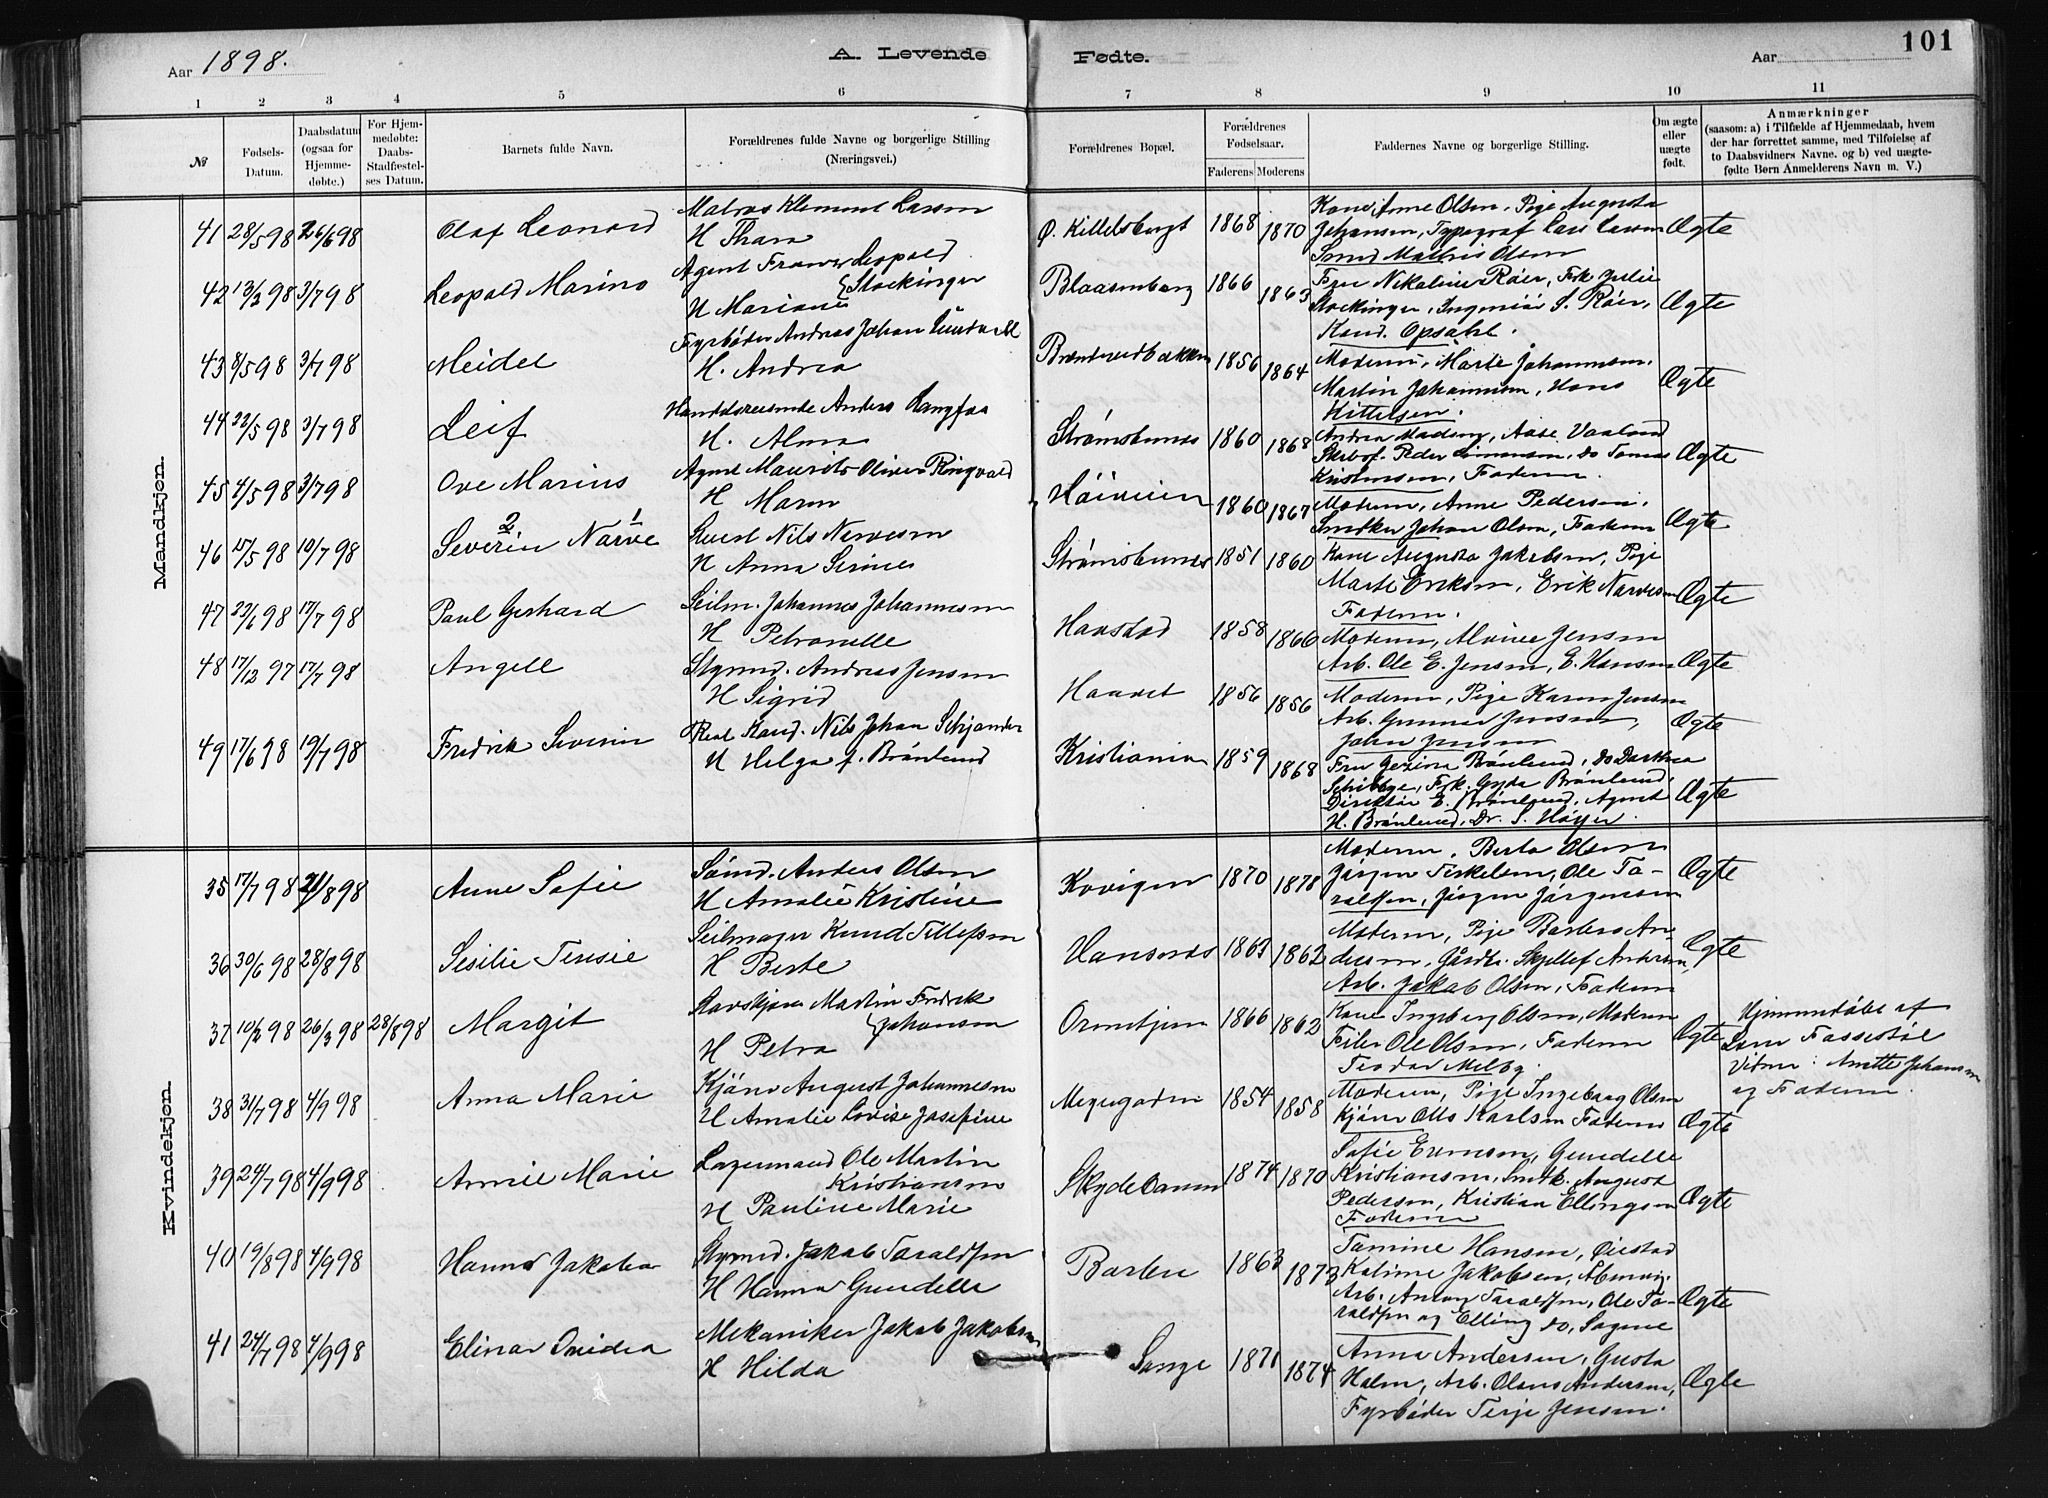 Aar 1898.
A. Levende
Fødte.
Aar
101
1 2 3 4 5 6 7 8 9 10 11
№
Fødsels-
Datum.
Daabsdatum
(ogsaa for
Hjemme-
døbte.)
For Hjem-
medøbte:
Daabs-
Stadfæstel-
ses Datum.
Barnets fulde Navn.
Forældrenes fulde Navne og borgerlige Stilling
(Næringsvei.)
Forældrenes Bopæl.
Forældrenes
Fødselsaar.
Faderens Moderens
Faddernes Navne og borgerlige Stilling.
Om ægte
eller
uægte
født.
Anmærkninger
(saasom: a) i Tilfælde af Hjemmedaab, hvem
der har forrettet samme, med Tilføielse af
to Daabsvidners Navne, og b) ved uægte-
fødte Børn Anmelderens Navn m. V.)
Mandkjøn.
41 28/5 98 26/6 98 Olaf Leonard
Matros Klement Larsen
H Thara
Ø. Kittelsbugt 1868 1870
Kone Anne Olsen, Pige Augusta
Johansen, Typograf Lars Larsen
Smed Mathis Olsen
Ægte
42 13/2 98 3/7 98 Leopold Marino
Agent Leopold
Stockinger
H Mariane
Blaasenborg 1866 1863
Fru Nikoline Röer, Frk Julie
Stockinger, Ingeniör S. Röer,
Kand. Opsahl.
Ægte
43 8/5 98 3/7 98 Meidel
Fyrbøder Andreas Johan
H. Andrea
1856 1864
Moderen, Marte Johannesen.
Martin Johannesen, Hans
Kittelsen.
Ægte
44 22/5 98 3/7 98 Leif
Handelsreisende Anders
H. Alma
Strømsbunes 1860 1868
Andrea Madsen, Aase
Peder Simonsen, do Tomas
Kristensen, Faderen
Ægte
45 4/5 98 3/7 98 Ove Marius
Agent Maurits Oliver Ringvold
H Maren
Høiveien 1860 1867
Moderen, Anne Pedersen.
Snedker Johan Olsen, Faderen
Ægte
46 17/5 98 10/7 98 Severin 2 Narve 1
Nils Narvesen
H Anna Serine
Strømsbunes 1851 1860
Kone Augusta Jakobsen, Pige
Marte Eriksen, Erik Narvesen
Faderen.
Ægte
47 22/6 98 17/7 98 Paul Gerhard
Seilm. Johannes Johannesen
H Petronelle
Havstad 1858 1866
Moderen, Alvine Jensen
Arb. Ole E. Jensen, E. Hansen
Ægte
48 17/12 97 17/7 98 Angell
Styrmd. Andreas Jensen
H Sigrid
Haavet 1856 1856
Moderen, Pige Karen Jensen
Arb. Gunnar Jensen,
John Jensen
Ægte
49 17/6 98 19/7 98 Fredrik Severin
Real Kand. Nils Johan Schjander
H Helga f. Brönlund
Kristiania 1859 1868
Fru Gezina Brönlund, do Dorthea
Schibbye, Frk. Gyda Brönlund,
Direktör E. Brönlund, Agent
H. Brönlund, Dr. S. Höyer.
Ægte
Kvindekjøn.
35 17/7 98 21/8 98 Anne Sofie
Sömd. Anders Olsen
H Amalie Kristine
Kovigen 1870 1878
Moderen, Berta Olsen
Jörgen Terkelsen, Ole Ta-
raldsen, Jörgen Jörgensen
Ægte
36 30/6 98 28/8 98 Sesilie Tensie
Seilmager Knud Tellefsen
H Berte
Hansnæs 1863 1862
Moderen, Pige Barbro An-
dersen, Gårdb. Skjellef Andersen,
Arb. Jakob Olsen, Faderen
Ægte
37 10/2 98 26/3 98 28/8 98 Margit
Martin Fredrik
Johansen
H Petra
Ormetjern 1866 1862
Kone Ingeborg Olsen, Moderen
Filer Ole Olsen, Faderen
Teodor Melby
Ægte
Hjemmedøbt af
Lena Fassestöl
Vidner: Anette Johansen
og Faderen
38 31/7 98 4/9 98 Anna Marie
Kjønr August Johannesen
H Amalie Lovise Josefine
1854 1858
Moderen, Pige Ingeborg Olsen
Kjønr Otto Karlsen Faderen
Ægte
39 24/7 98 4/9 98 Annie Marie
Lazermand Ole Martin
Kristiansen
H Pauline Marie
Skydebanen 1874 1870
Sofie Evensen, Gundelle
Kristiansen, Smk. August
Pedersen, Kristian Ellingsen
Faderen
Ægte
40 19/8 98 4/9 98 Hanna Jakoba
Styrmd. Jakob Taraldsen
H Hanna Gundelle
Barbu 1863 1873
Tomine Hansen, Øiestad
Katinne Jakobsen,
Arb. Anton Taraldsen, Ole Ta-
raldsen og Elling do, Sagene
Ægte
41 24/7 98 4/9 98 Elinar Ovidia
Mekaniker Jakob Jakobsen
H Hilda
Songe 1871 1874
Anna Andersen, Gusta
Holm, Arb. Olaus Andersen,
Fyrbøder Terje Jensen.
Ægte